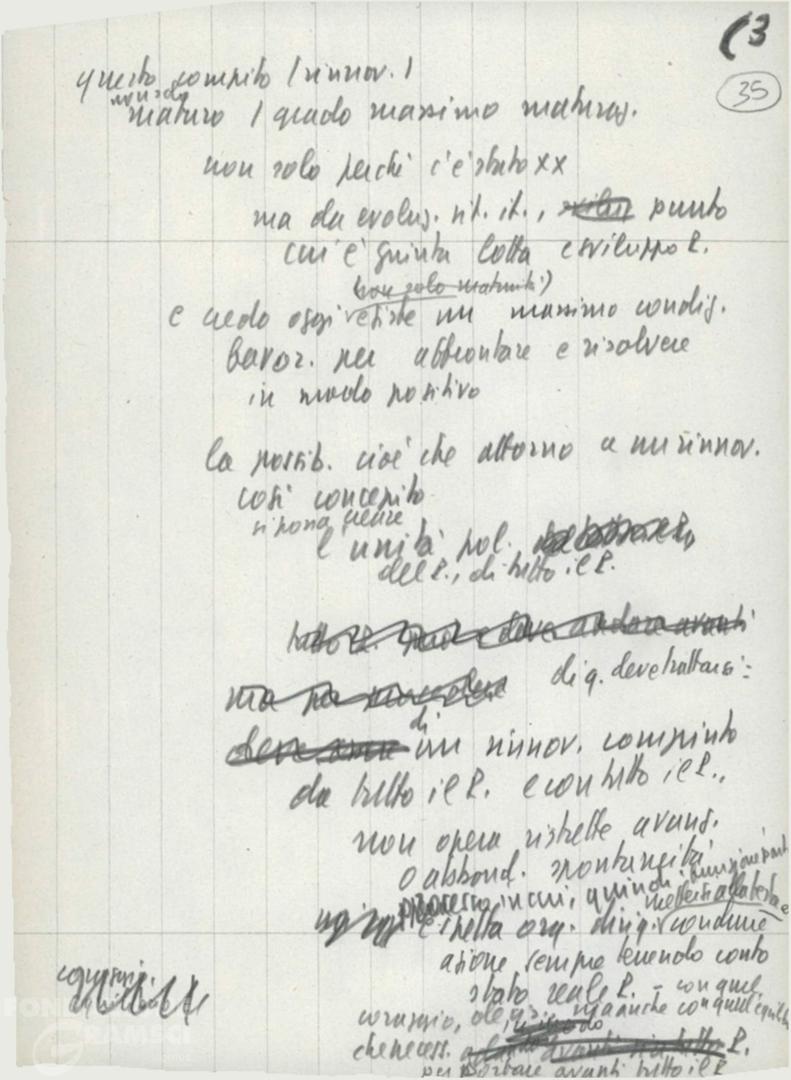 (3
35
questo compito (rinnov.)
maturo / grado massimo maturaz.
non solo perché c'è stato xx
ma da evoluz. sit. it., punto
cui è giunta lotta e sviluppo P.
(non solo maturità)
e credo oggi esiste un massimo condiz.
favor. per affrontare e risolvere
in modo positivo
la possib. cioè che attorno a un rinnov.
così concepito
si possa
l'unità pol.
del P., di tutto il P.
tutto P. deve andare avanti
ma
di q. deve trattarsi:
deve
di
un rinnov. compiuto
da tutto il P. e con tutto il P.,
non opera ristrette avang.
o abband. spontaneità
processo in cui, quindi, funzione
mettersi alla testa e
è nella org. dirig. condurre
azione sempre tenendo conto
stato reale P. - con quel
coraggio, ma anche con quell'equilib.
che necess. avanti tutto P.
per portare avanti tutto il P.
coraggio.
FONDAZIONE
GRAMSCI